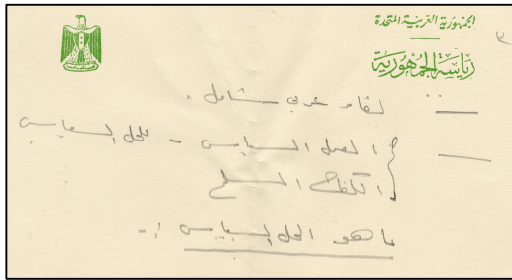 الجمهورية العربية المتحدة
رياسة الجمهورية
٣
لقاء عربى شامل .
العمل السياسى - للحل السياسى
الكفاح المسلح
ما هو الحل السياسى :-